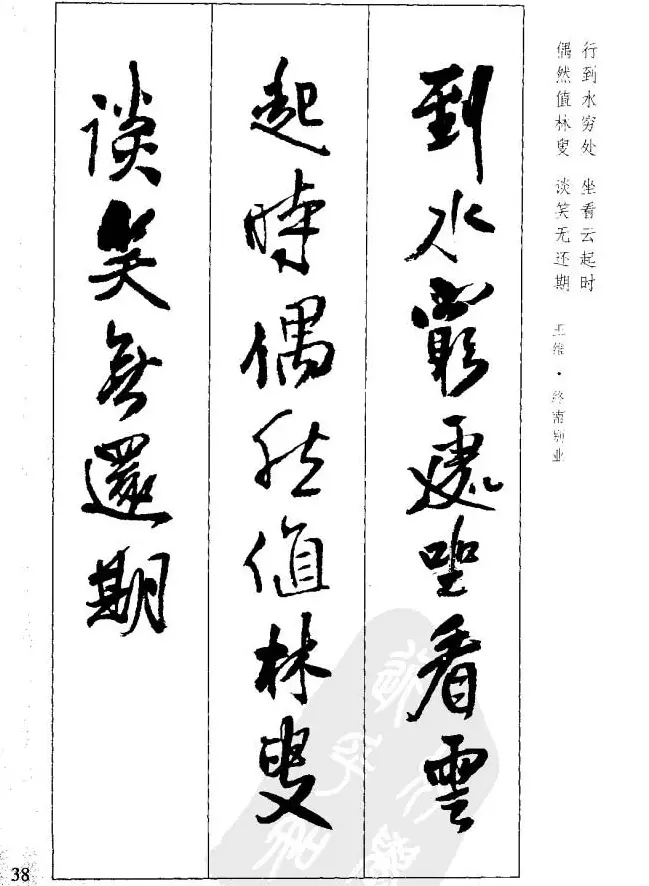 到水窮處坐看雲
起時偶然值林叟
談笑無還期
行到水穷处 坐看云起时
偶然值林叟 谈笑无还期
王维·终南别业
38